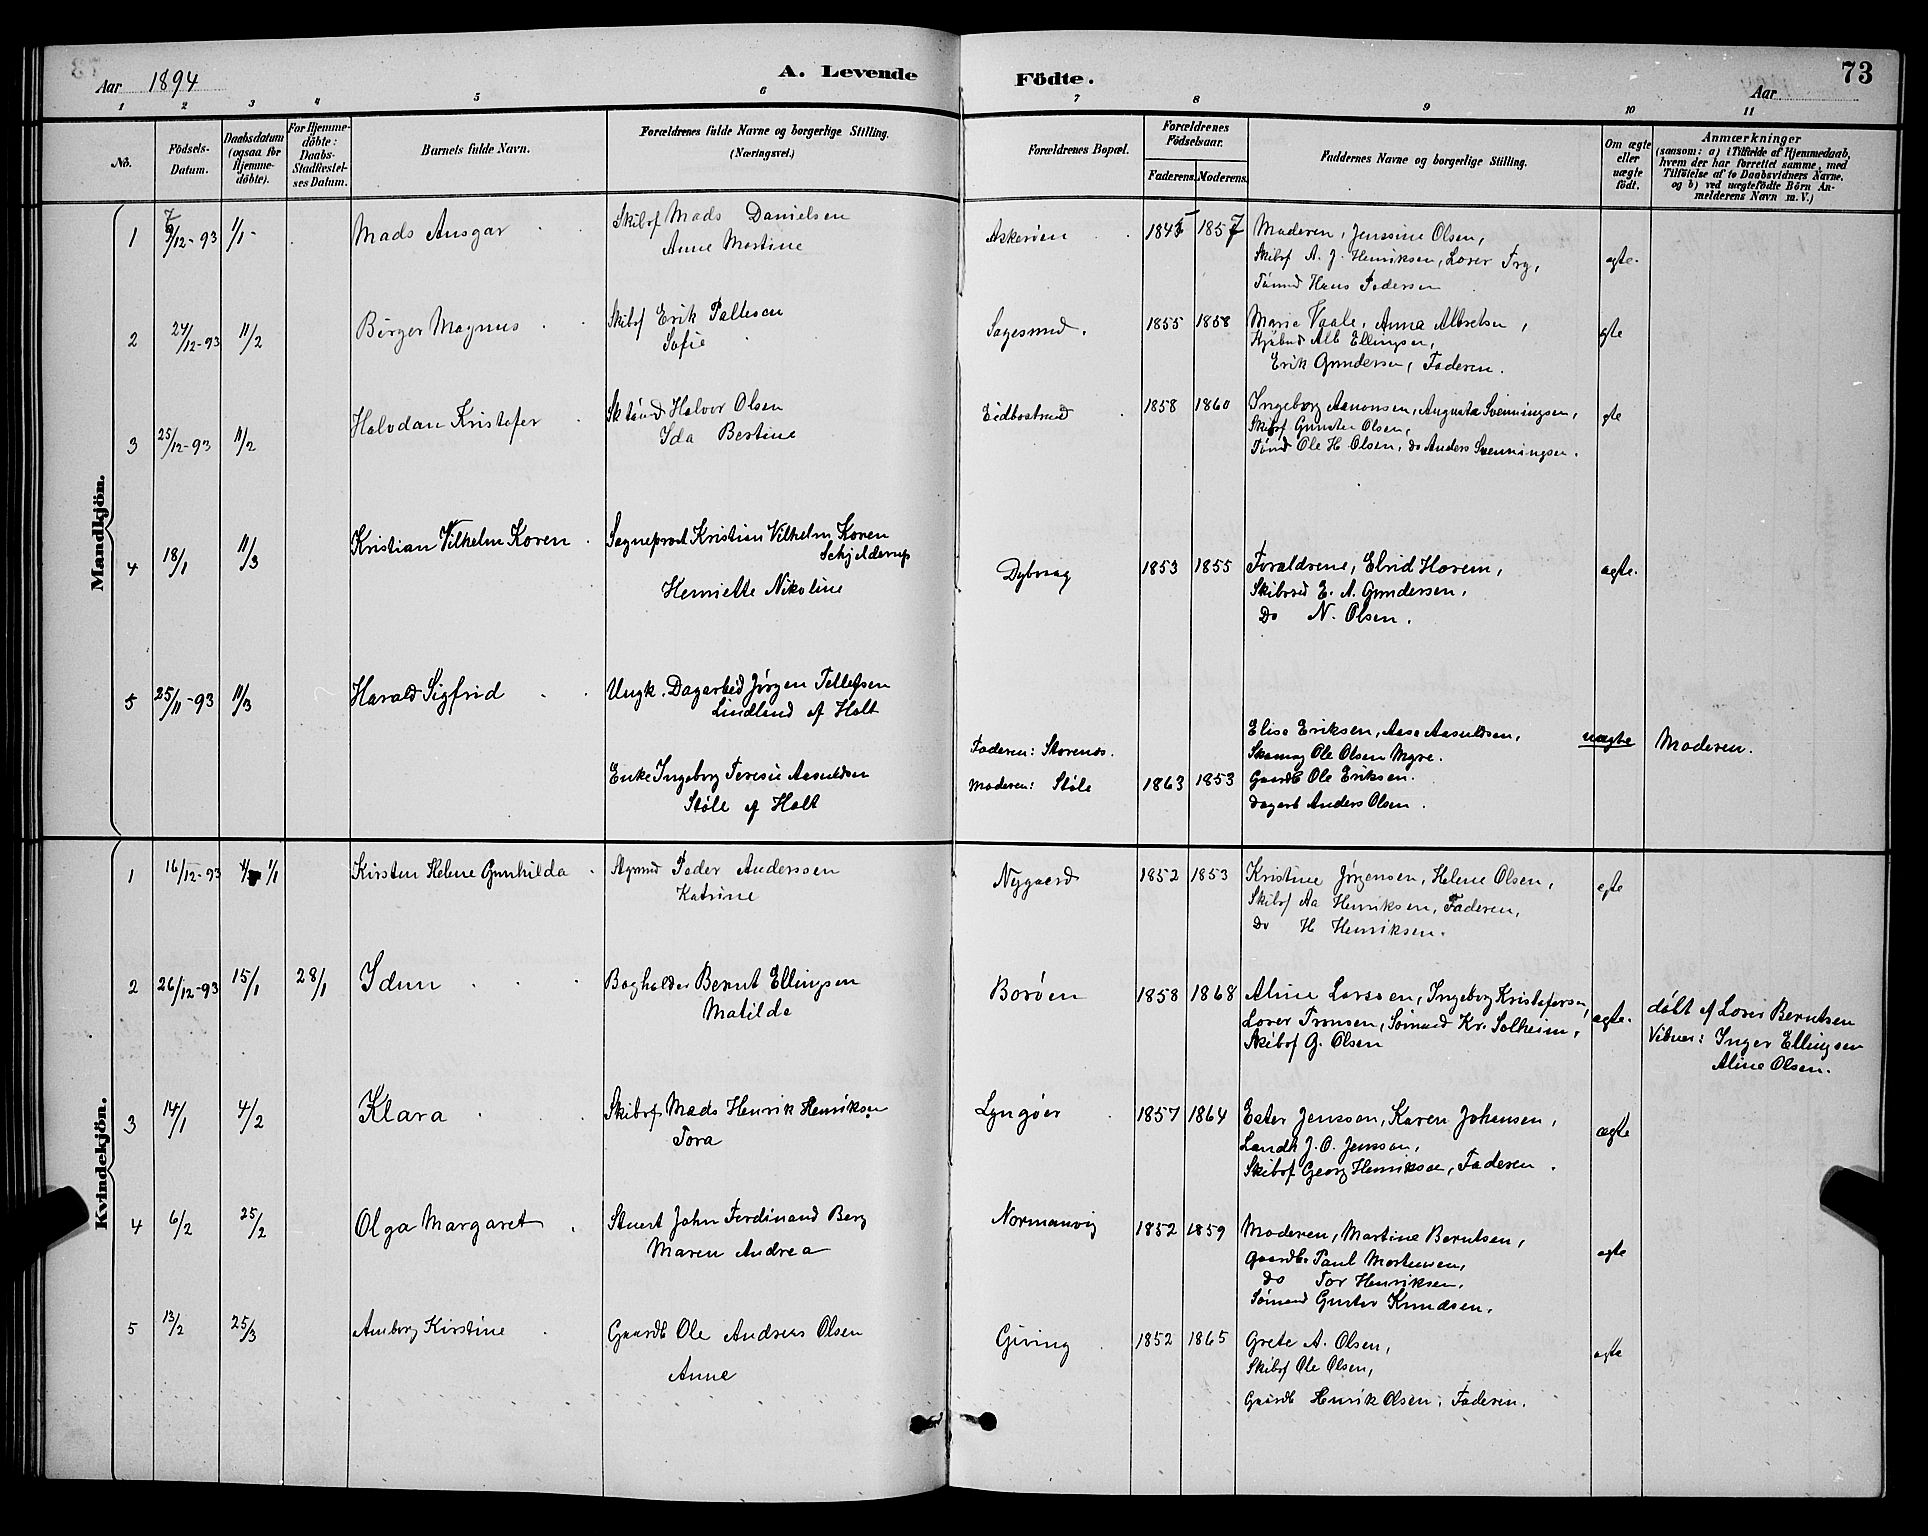 Aar 1894
A. Levende
Födte.
73
Aar
1 2 3 4 5 6 7 8 9 10 11
No.
Födsels-Datum.
Daabsdatum (ogsaa for Hjemmedöbte).
For Hjemmedöbte: Daabs-Stadfæstelses Datum.
Barnets fulde Navn.
Forældrenes fulde Navne og borgerlige Stilling.
(Næringsvei.)
Forældrenes Bopæl.
Forældrenes Födselsaar.
Faderens. Moderens.
Faddernes Navne og borgerlige Stilling.
Om ægte eller uægte födt.
Anmærkninger
(saasom: a) i Tilfælde af Hjemmedaab,
hvem der har forrettet samme, med
Tilföielse af to Daabsvidners Navne,
og b) ved uægtefödte Börn An-
melderens Navn m. V.)
Mandkjön.
1 /12-93 1/1 Mads Ansgar Skibsf Mads Danielsen Askerøen 1845 1857 Moderen, Jenssine Olsen, ægte.
Anne Martine Skibsf A. J. Henriksen, Lover Try,
Tømmd Hans Pedersen
2 27/12-93 11/2 Børger Magnus Skibsf Erik Pallesen Sagesund. 1855 1858 Marie Vaale, Anna Albretsen, ægte
Sofie Alb Ellingsen,
Erik Gundersen, Faderen.
3 25/12-93 11/2 Halvdan Kristofer Halvor Olsen Eidbostrand 1858 1860 Ingeborg Aanonsen, Augusta Svenningsen, ægte
Ida Bertine Skibsf Gunster Olsen,
Tømd Ole H. Olsen, do Anders Svenningsen.
4 18/1 11/3 Kristian Vilhelm Koren Sogneprest Kristian Vilhelm Koren
Schjelderup
Henriette Nikoline Dybvaag 1853 1855 Forældrene, Elvid Horem, ægte.
Skibsred E. A. Gundersen,
Do N. Olsen.
5 25/11-93 11/3 Harald Sigfrid Ungk. Dagarbeid Jørgen Tellefsen
Lindland af Holt
Faderen: Storenes.
Enke Ingeborg Teresie Aasuldsen
Støle af Holt
Moderen: Støle 1863 1853
Elise Eriksen, Aase Aasuldsen, uægte Moderen.
Skomag Ole Olsen Myre.
Gaardb Ole Eriksen.
Dagarb Anders Olsen.
Kvindekjön.
1 16/12-93 1/1 Kirsten Helene Gunhilda Peder Anderssen Nygaard 1852 1853 Kristine Jørgensen, Helene Olsen, ægte
Katrine Skibsf Aa Henriksen, Faderen,
Do H Henriksen.
2 26/12-93 15/1 28/1 Idun Bogholder Bernt Ellingsen Borøen 1858 1868 Aline Larssen, Ingeborg Kristofersen, ægte. døbt af Lovis Berntsen
Matilde Lover Tronsen, Sømand Kr. Solheim, Vidner: Inger Ellingsen
Skibsf G. Olsen Aline Olsen.
3 14/1 4/2 Klara Skibsf Mads Henrik Henriksen Lyngøer 1857 1864 Ester Jenssen, Karen Johansen, ægte
Tora Landh J. O. Jenssen,
Skibsf Georg Henriksen, Faderen.
4 6/2 25/2 Olga Margaret Stuert John Ferdinand Berg Normanvig 1852 1859 Moderen, Martine Berntsen, ægte
Maren Andrea Gaardb Paul Mortensen,
do Tor Henriksen,
Sømand Gustav Knudsen.
5 13/2 25/3 Amborg Kirstine Gaardb Ole Andreas Olsen Giving 1852 1865 Grete A. Olsen, ægte
Anne Skibsf Ole Olsen,
Gaardb Henrik Olsen, Faderen.